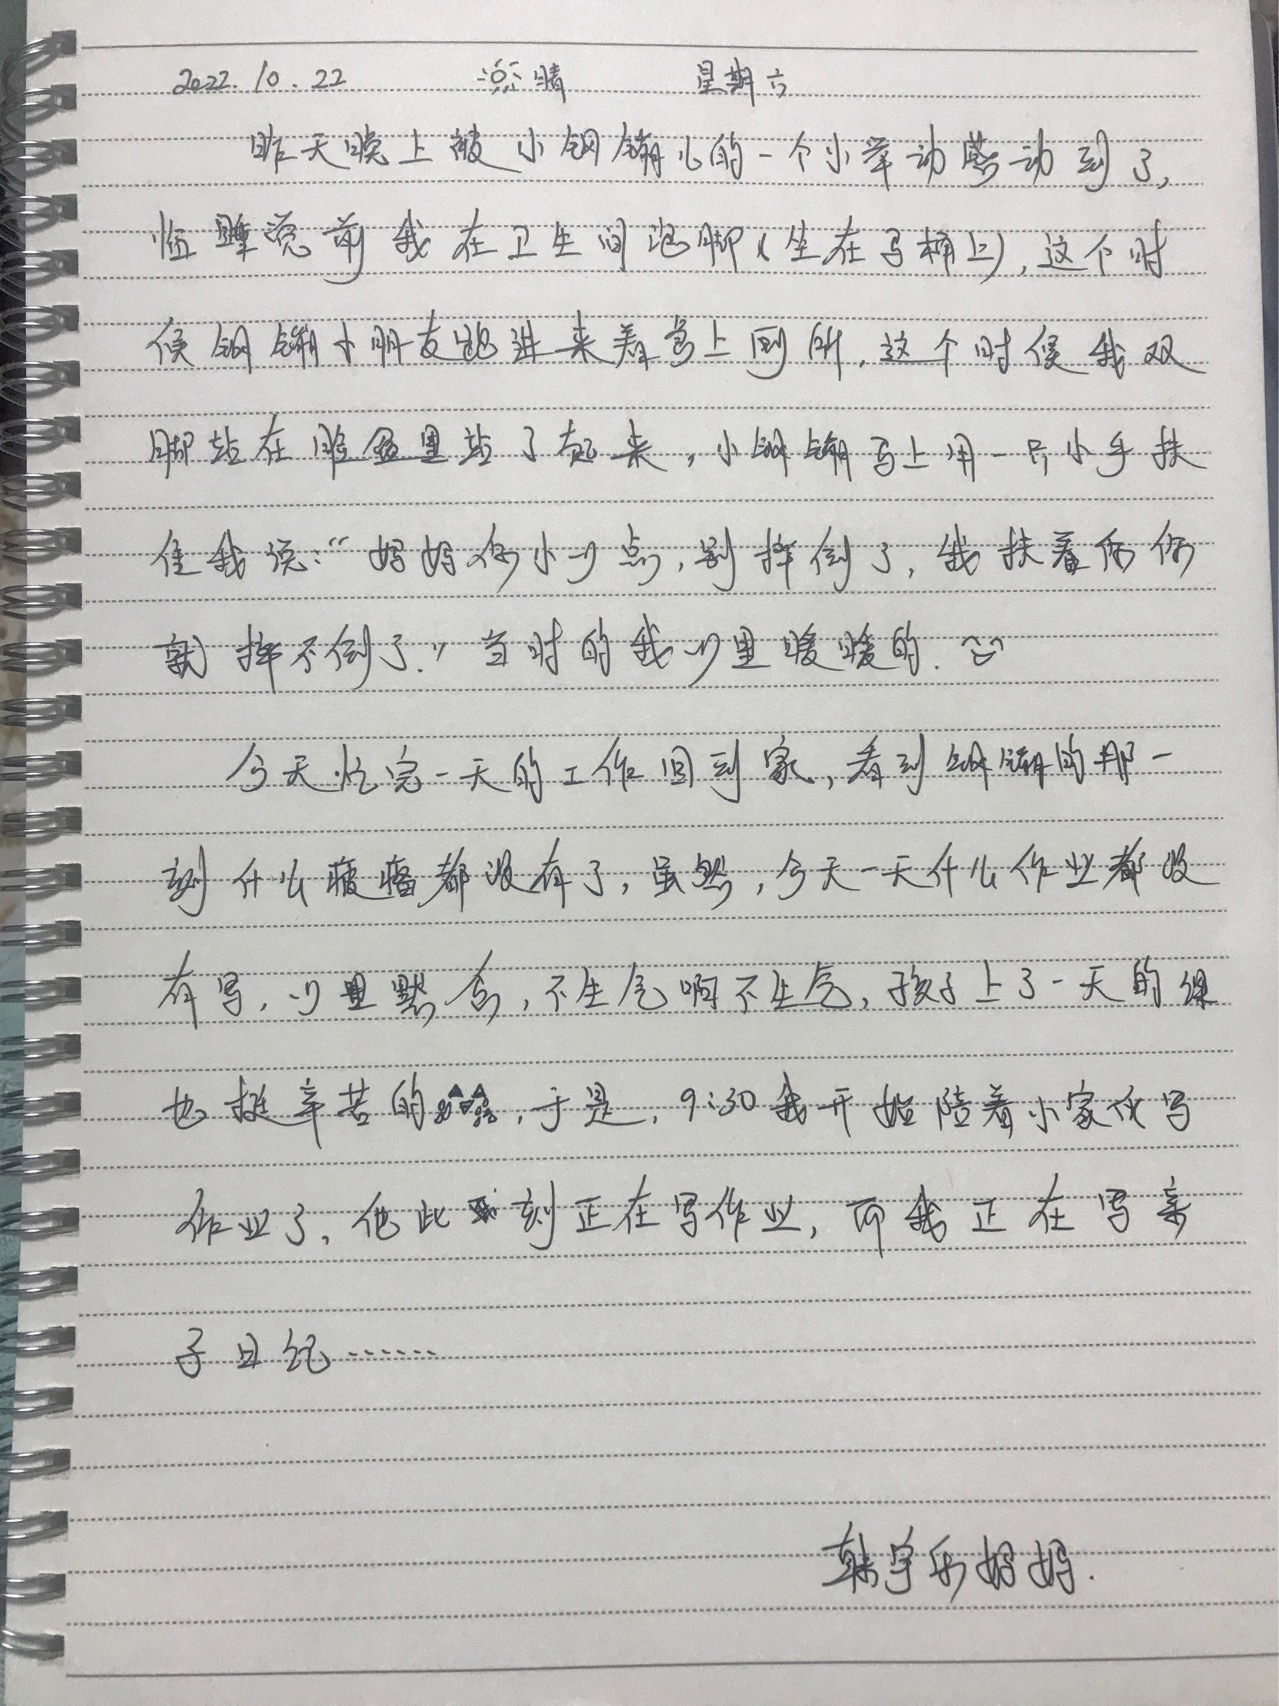 2022.10.22 晴 星期六
昨天晚上被小钢镚儿的一个小举动感动到了,
临睡觉前我在卫生间泡脚(坐在马桶上),这个时
候钢镚小朋友跑进来着急上厕所,这个时候我双
脚站在脚盆里站了起来,小钢镚马上用一只小手扶
住我说:“妈妈你小心点,别摔倒了,我扶着你你
就摔不倒了.”当时的我心里暖暖的.
今天忙完一天的工作回到家,看到钢镚的那一
刻什么疲惫都没有了,虽然,今天一天什么作业都没
有写,心里默念,不生气啊不生气,孩子上了一天的课
也挺辛苦的,于是,9:30我开始陪着小家伙写
作业了,他此刻正在写作业,而我正在写亲
子日记……
韩宇乐妈妈.